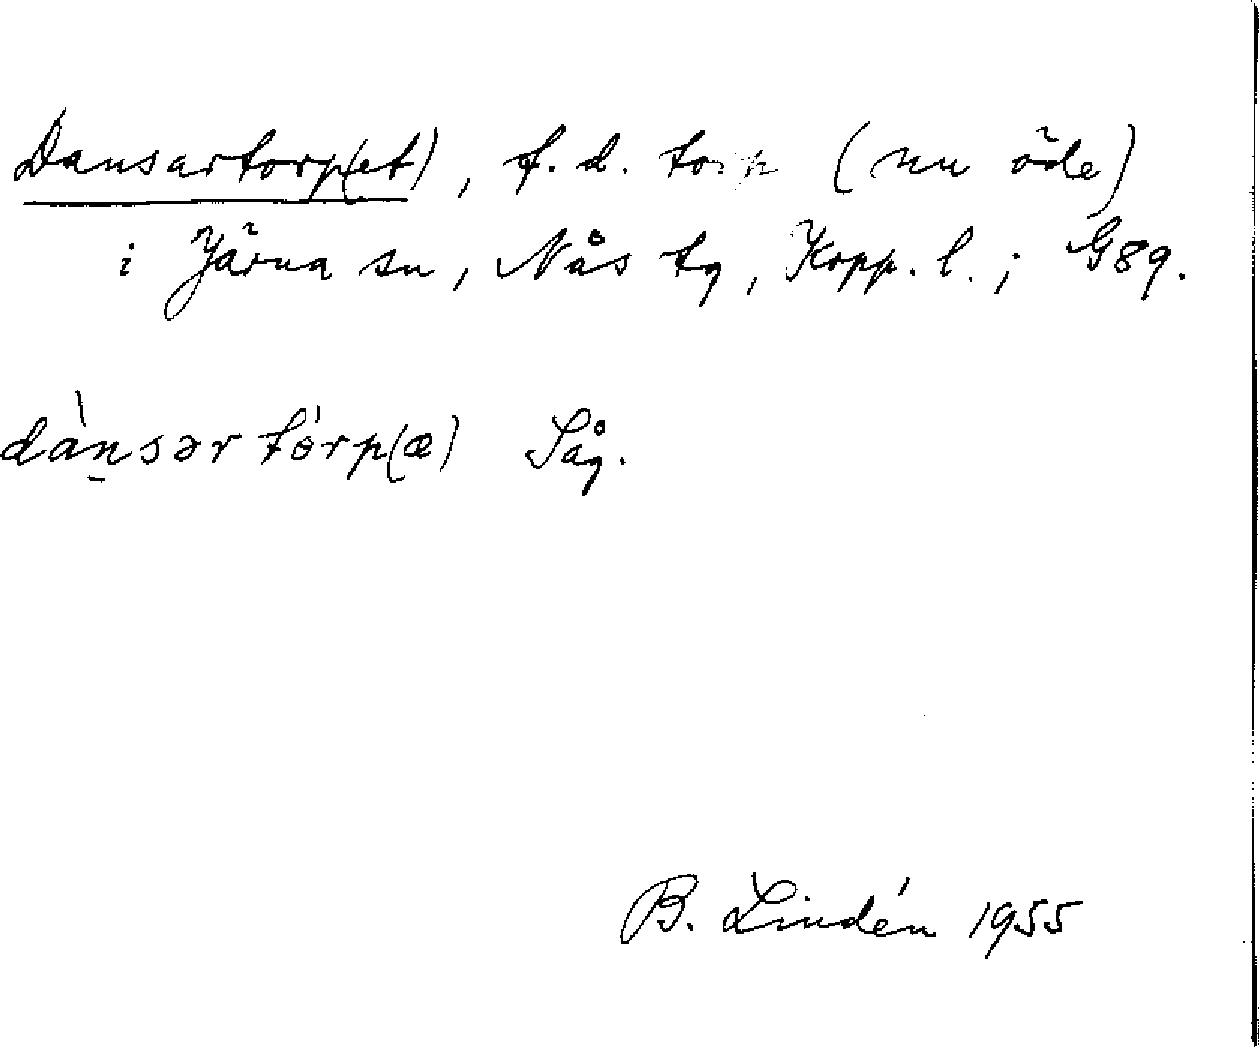 Dansartorp(et), f.d. torp (nu öde)
i Järna sn, Nås tg, Kopp. l.; G89.
dànsər tórp(æ) Såg.
B. Lindén 1955